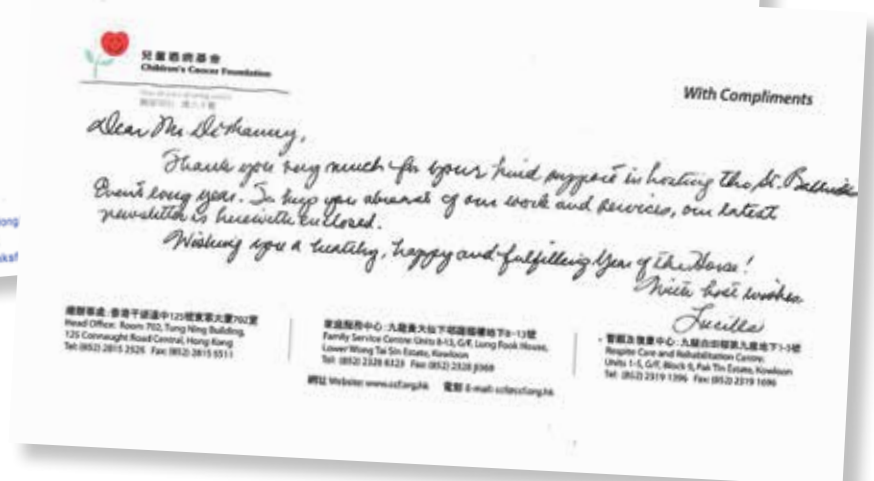 兒童癌病基金
Children's Cancer Foundation
With Compliments
Dear Mr
Thank you very much for your kind support in hosting the St.
Events every year. To keep you abreast of our work and services, our latest
newsletter is herewith enclosed.
Wishing you a healthy, happy and fulfilling Year of the Horse!
With best wishes
Lucilla
總辦事處:香港干諾道中125號東寧大廈702室
Head Office: Room 702, Tung Ning Building,
125 Connaught Road Central, Hong Kong
Tel: (852) 2815 2525 Fax: (852) 2815 5511
家庭服務中心:九龍黃大仙下邨龍福樓地下8-13號
Family Service Centre: Units 8-13, G/F, Lung Fook House,
Lower Wong Tai Sin Estate, Kowloon
Tel: (852) 2328 8323 Fax: (852) 2328
網址 Website: www.ccf.org.hk 電郵 E-mail: ccf@ccf.org.hk
Respite Care and Rehabilitation Centre:
Units 1-5, G/F, Block 9, Pak Tin Estate, Kowloon
Tel: (852) 2319 1396 Fax: (852) 2319 1696